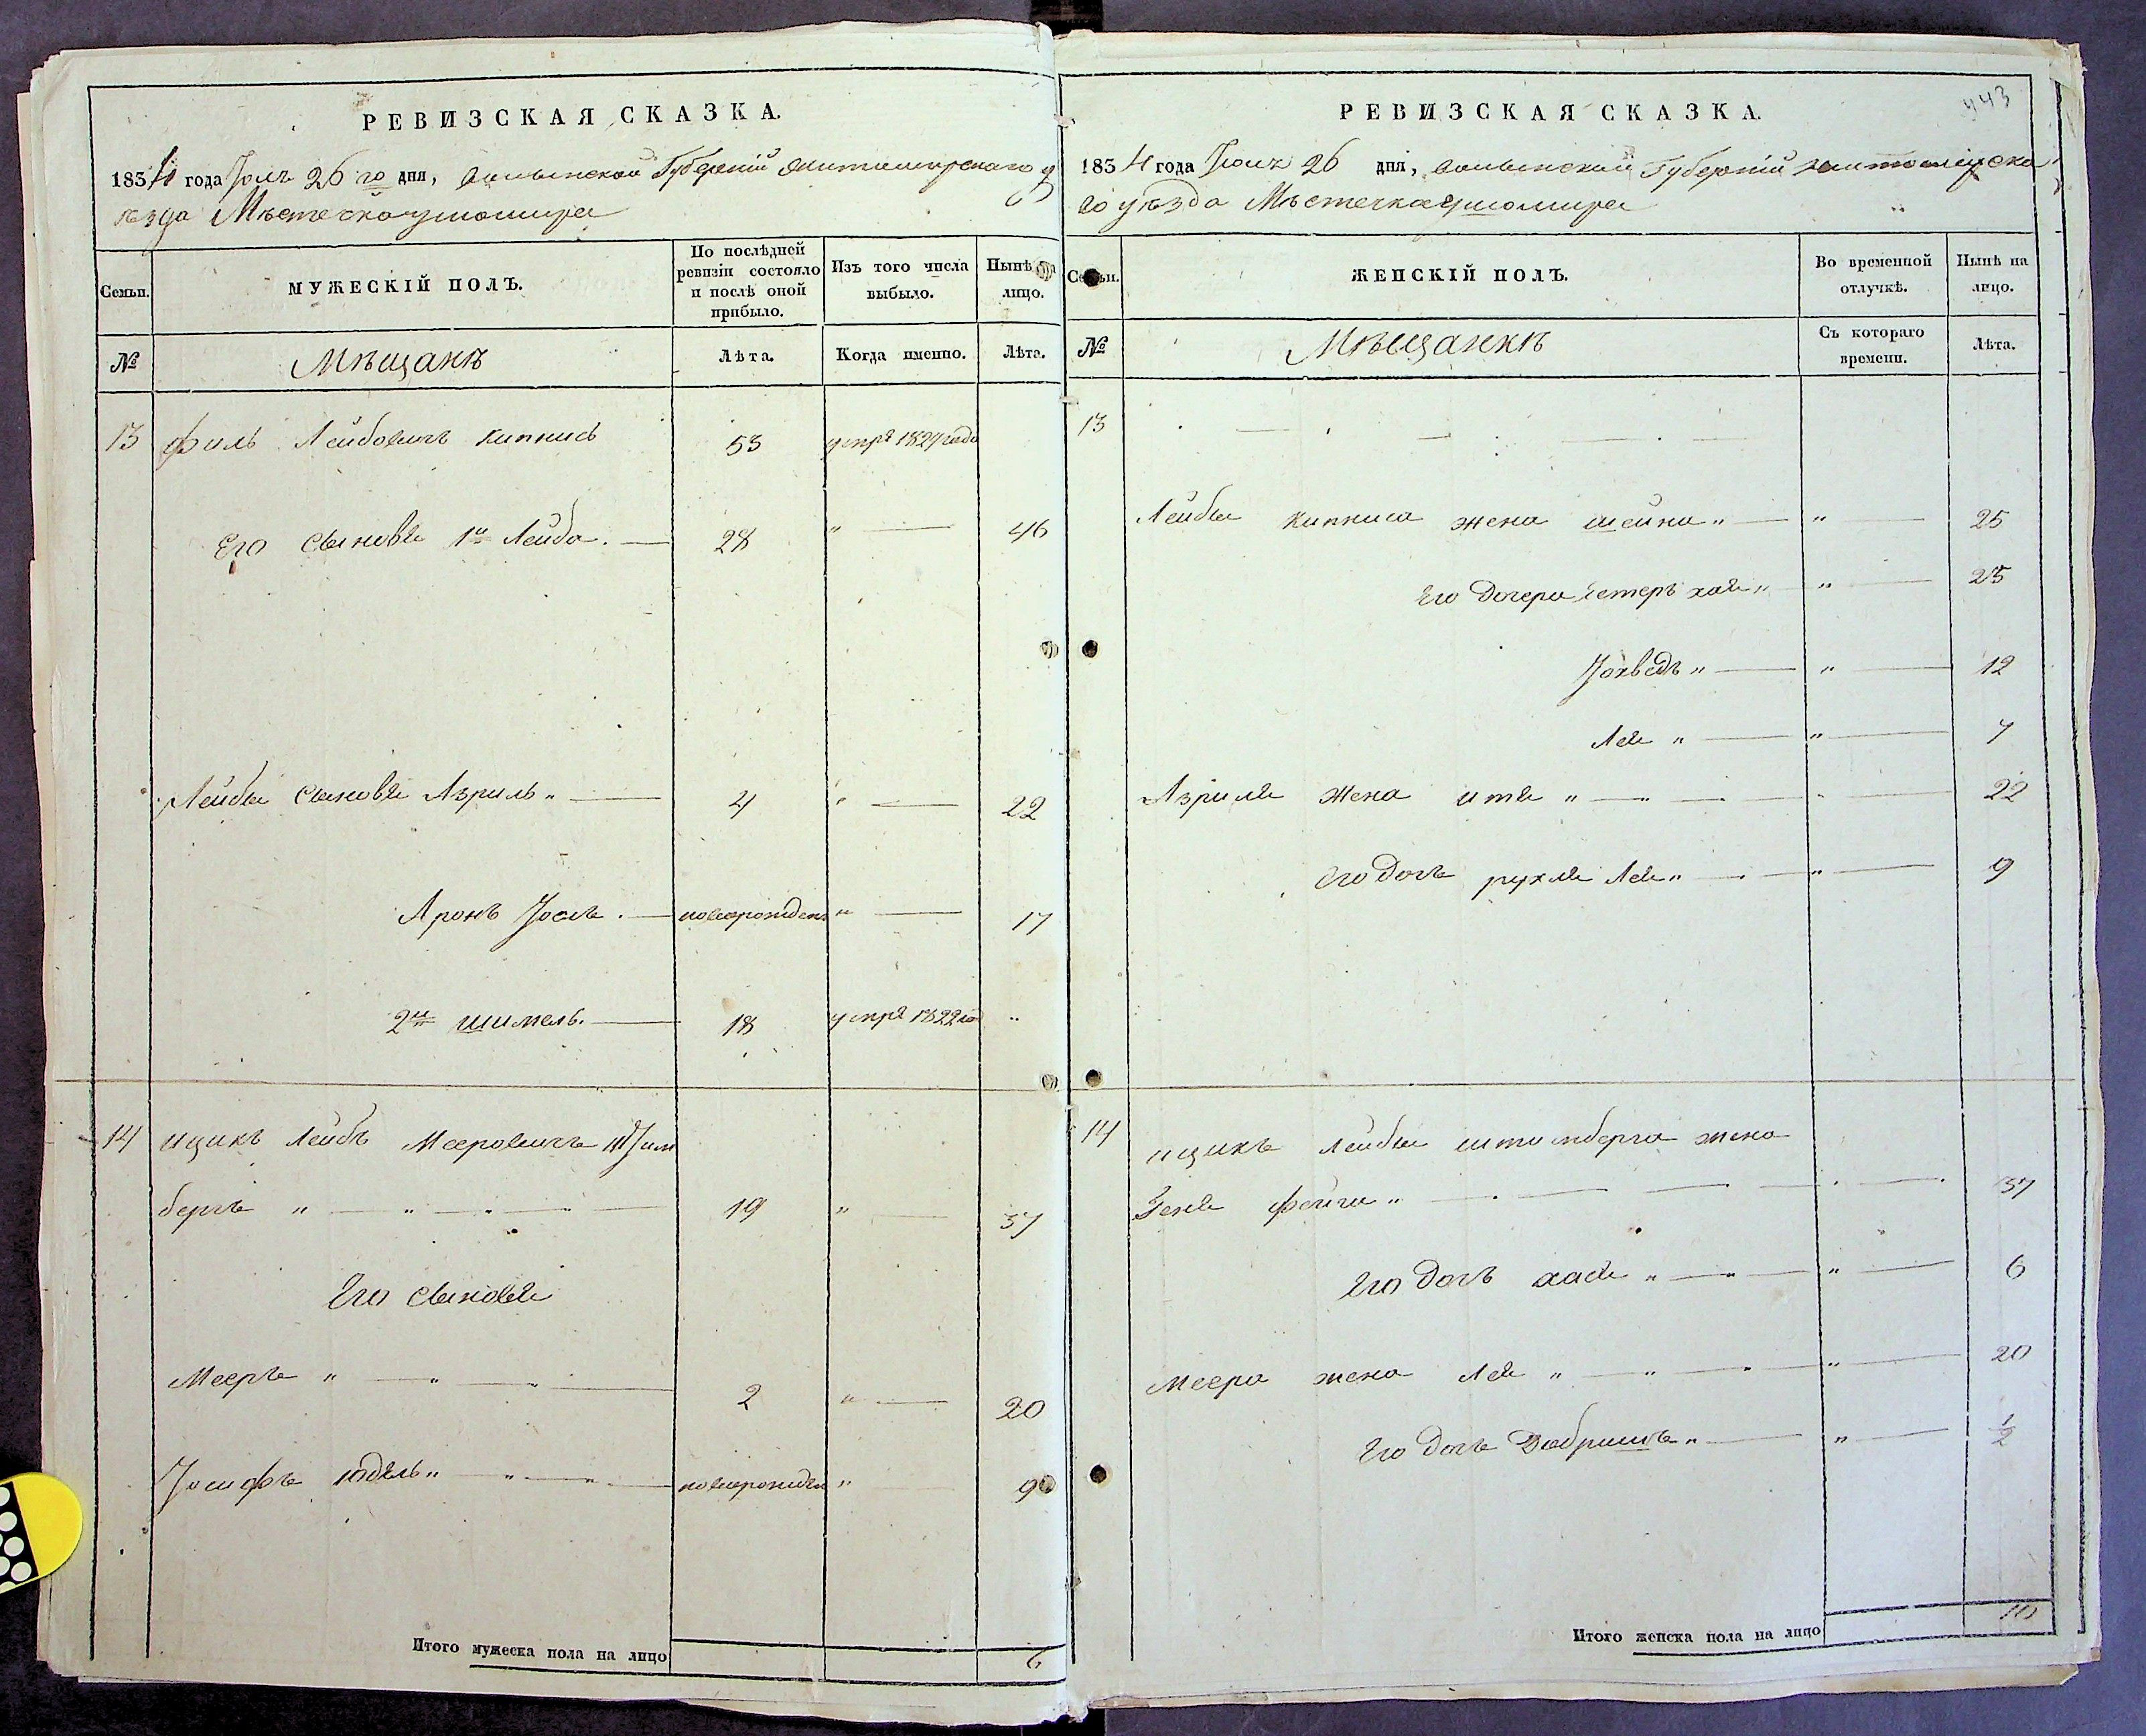 РЕВИЗСКАЯ СКАЗКА.
1834 года Іюля 26 го дня, Волынской Губерніи Житомирскаго у
ѣзда Мѣстечка Ушомира
Семьи.
МУЖЕСКІЙ ПОЛЪ.
По послѣдней ревизіи состояло и послѣ оной прибыло.
Изъ того числа выбыло.
Нынѣ на лицо.
№
Мѣщанѣ
Лѣта.
Когда именно.
Лѣта.
13 Лейбовичъ Кипнисъ 53 умре 1827 года
Его сыновья 1й Лейба. 28 " 46
Лейбы сыновья Азриль " 4 " 22
Аронъ Іось. новорожден " 17
2й Шимель. 18 умре 1822 год "
14 Ицикъ Лейбъ Мееровичъ Штим
бергъ " " " " 19 " 37
Его сыновья
Мееръ " " " 2 " 20
Іосифъ Юдель " " " новорожден " 9
Итого мужеска пола на лицо 6
443
РЕВИЗСКАЯ СКАЗКА.
1834 года Іюля 26 дня, Волынской Губерніи Житомирска
го уѣзда Мѣстечка Ушомира
Семьи.
ЖЕНСКІЙ ПОЛЪ.
Во временной отлучкѣ.
Нынѣ на лицо.
№
Мѣщанкѣ
Съ котораго времени.
Лѣта.
13
Лейбы Кипниса жена Шейна " " 25
Его дочери Естеръ Хая " " 25
Іохведъ " " 12
Лея " " 7
Азриля жена Итя " " 22
Его дочь Рухля Лея " " 9
14 Ицикъ Лейбы Штимберга жена
Феига " 37
Его дочь Хася " " " 6
Меера жена Лея " " " 20
Его дочь Добришъ " " 1/2
Итого женска пола на лицо 10